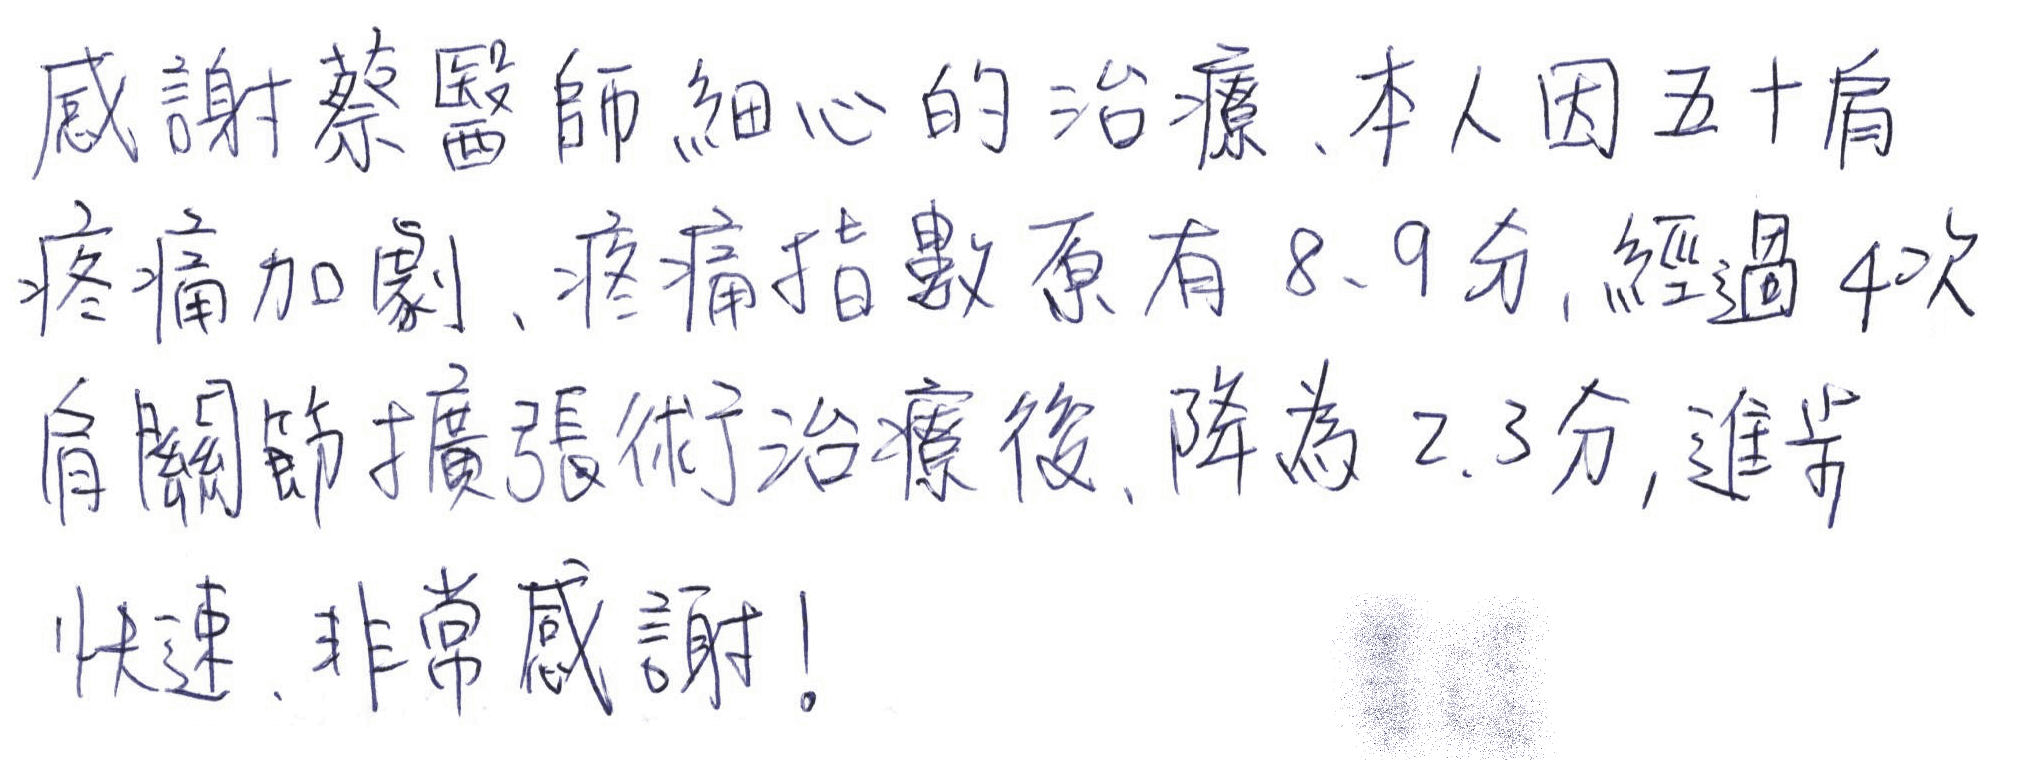 感謝蔡醫師細心的治療、本人因五十肩
疼痛加劇、疼痛指數原有8、9分,經過4次
肩關節擴張術治療後、降為2.3分,進步
快速、非常感謝!